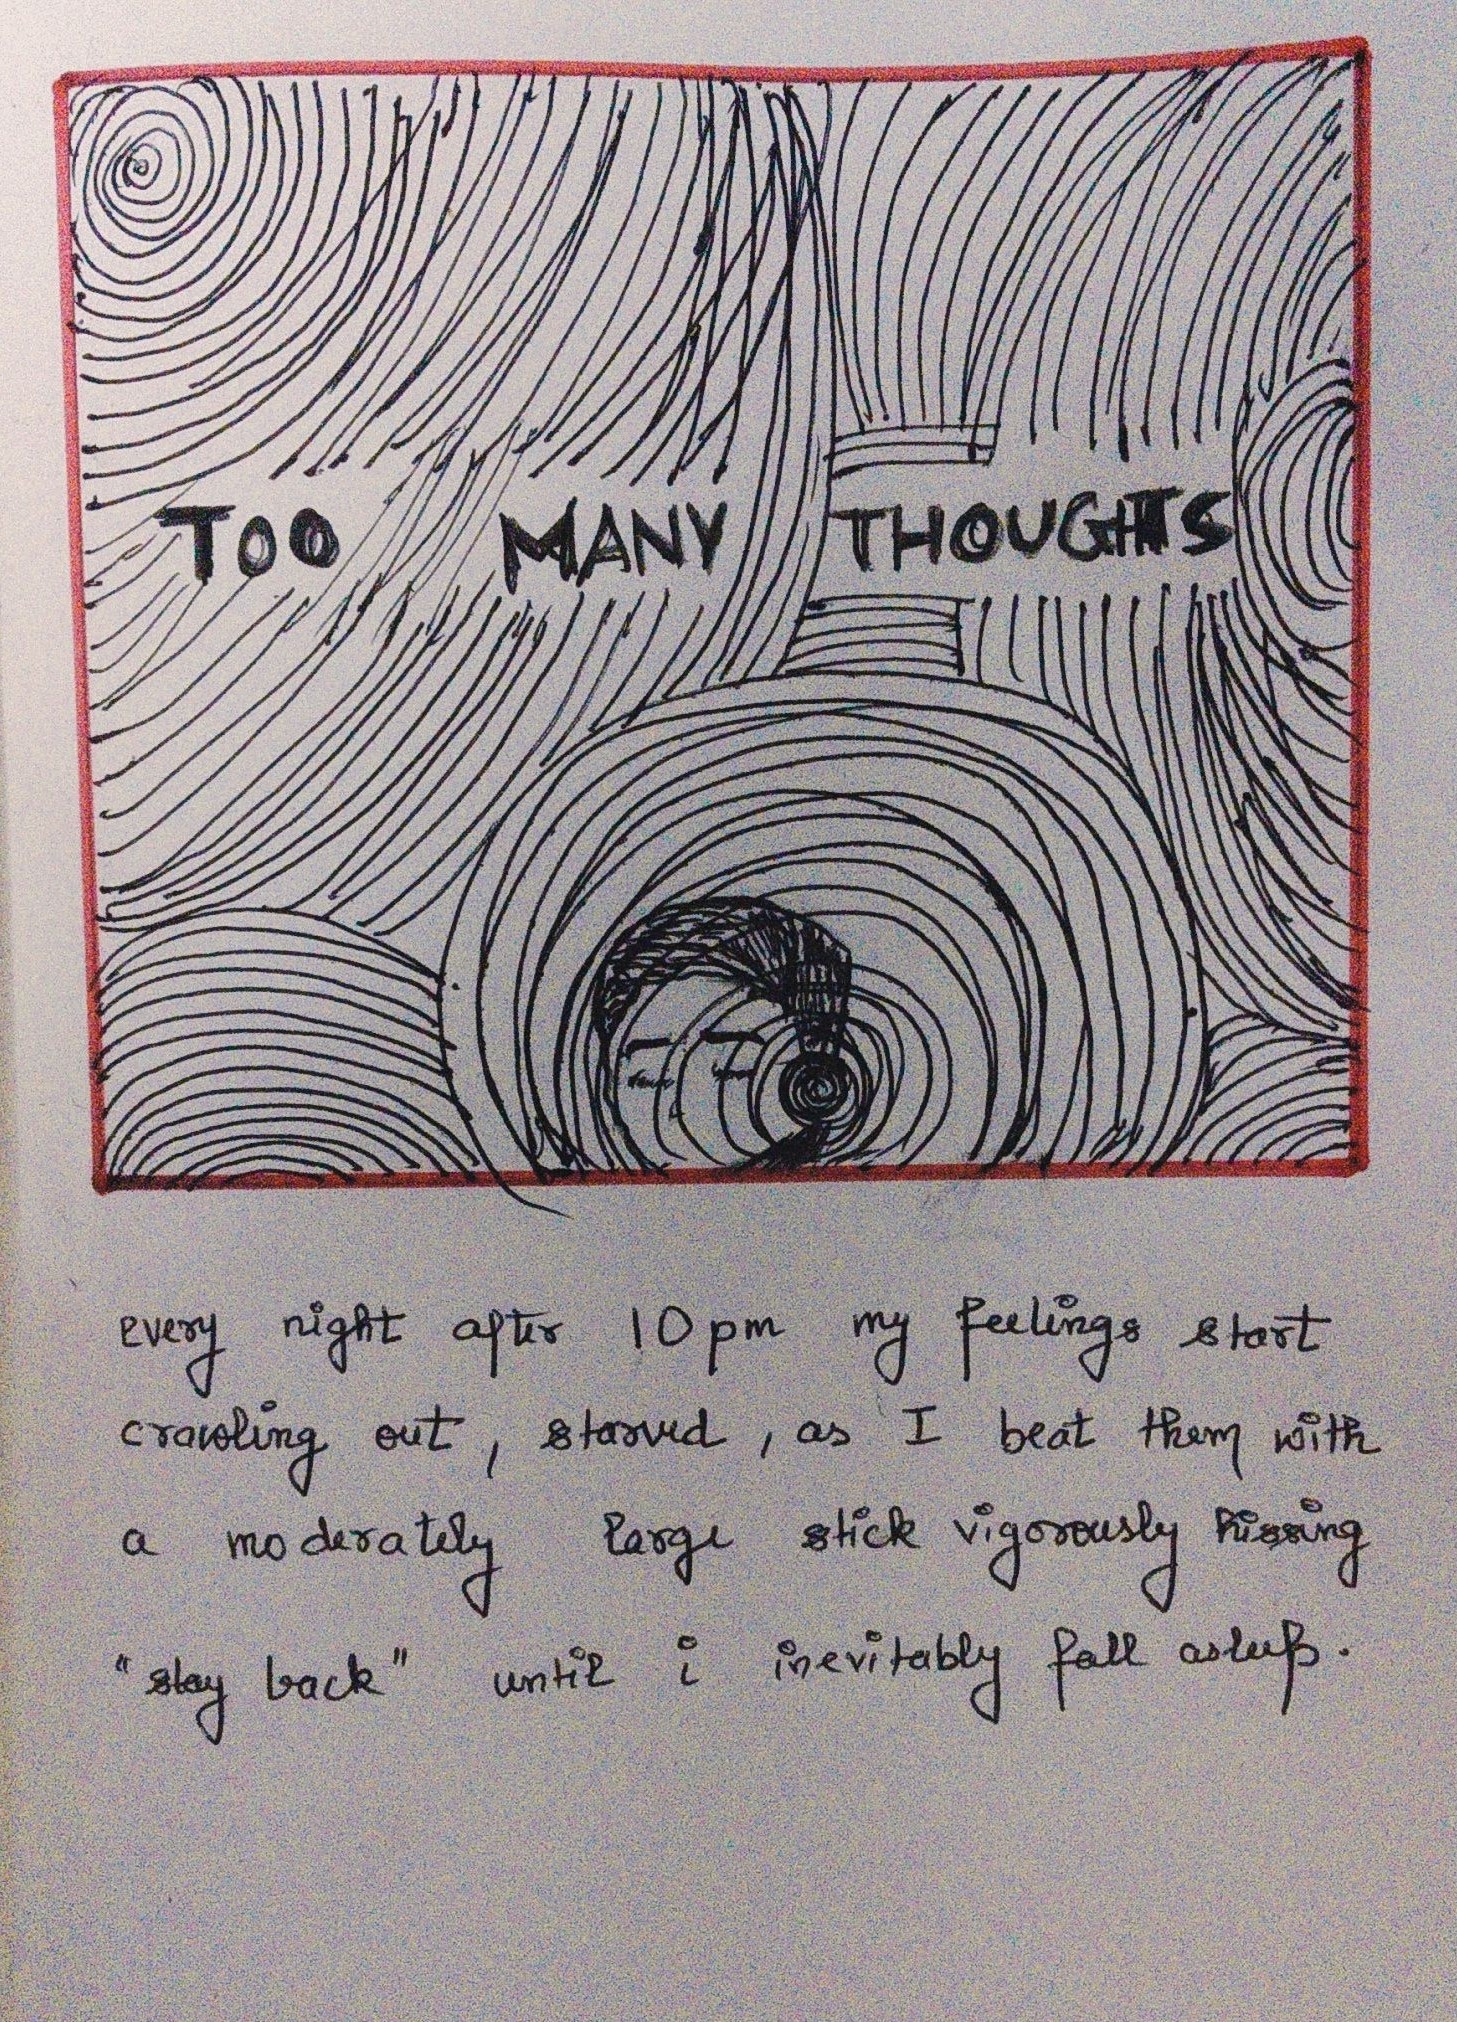 TOO MANY THOUGHTS
every night after 10pm my feelings start
crawling out, starved, as I beat them with
a moderately large stick vigorously hissing
"stay back" until i inevitably fall asleep.